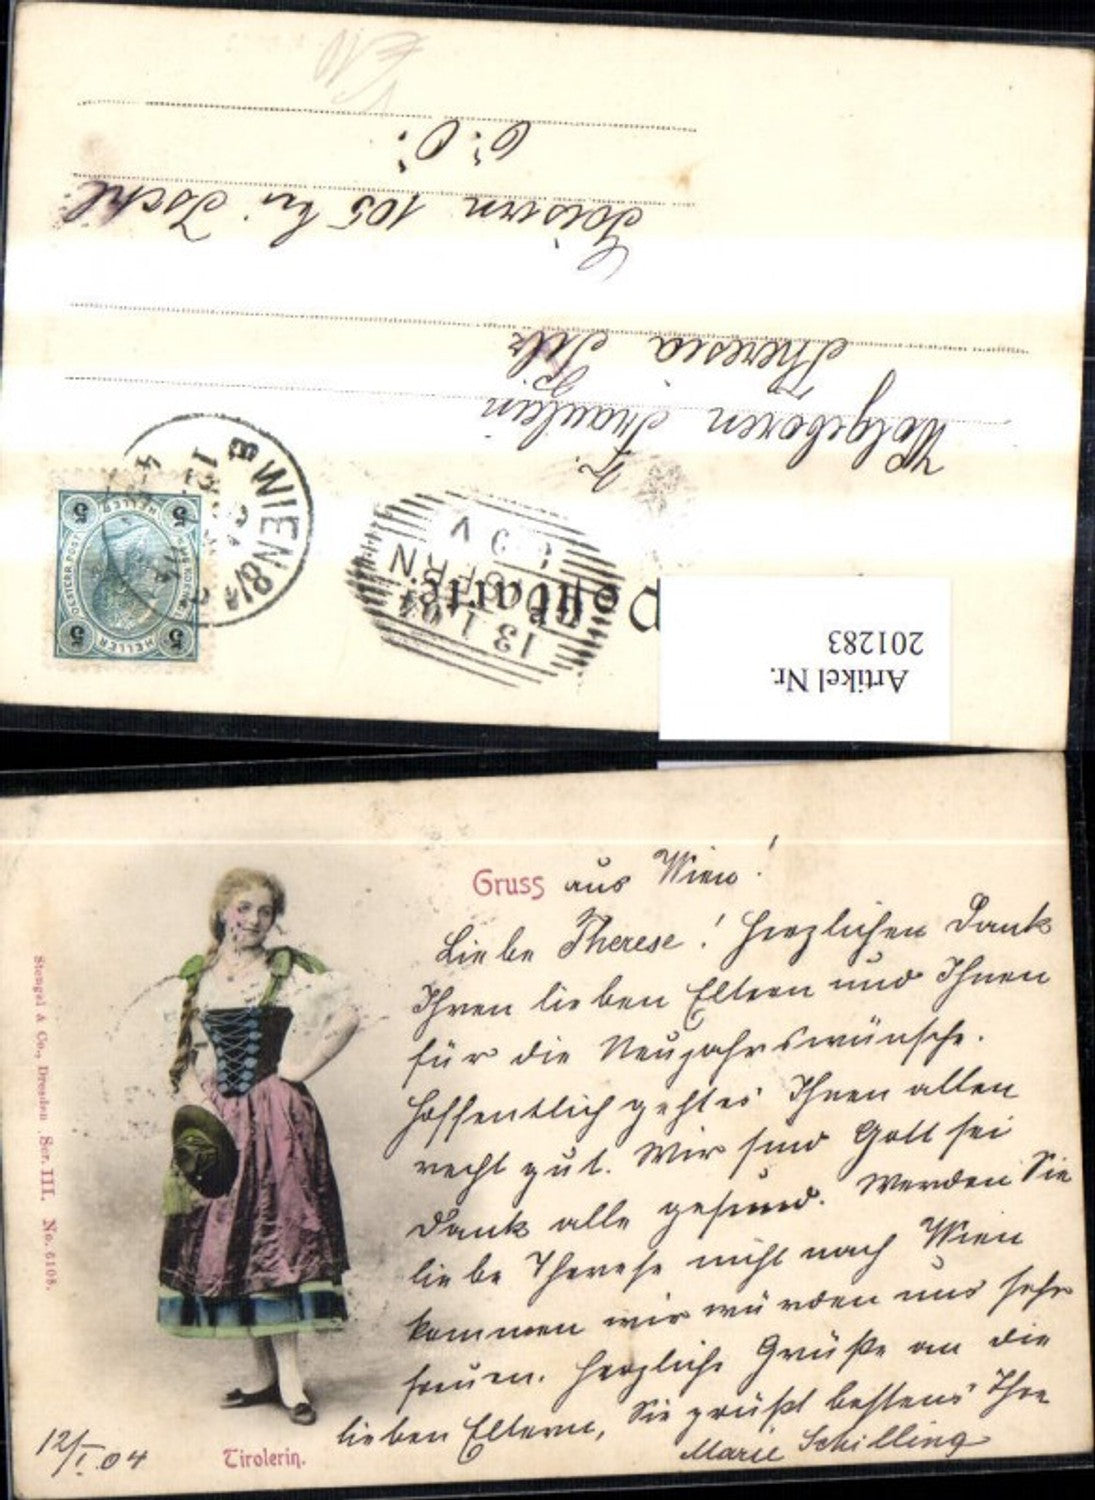 6. O.
Goisern 105 bei Ischl
Theresia Pilz
Wolgeboren Fräulein
Frl.
WIEN 8/1
5 5
HELLER
5 5
HELLER
13 1 04
GOISERN
Postkarte
Artikel Nr.
201283
Gruss aus Wien!
Liebe Therese! Herzlichen Dank
Ihren lieben Eltern und Ihnen
für die Neujahrswünsche.
Hoffentlich geht es Ihnen allen
recht gut. Wir sind Gott sei
Dank alle gesund. Werden Sie
liebe Therese nicht nach Wien
kommen wir würden uns sehr
freuen. Herzliche Grüße an die
lieben Eltern, Sie grüßt bestens Ihre
Marie Schilling
12/I.04
Tirolerin.
Stengel & Co., Dresden Ser. III. No. 6108.